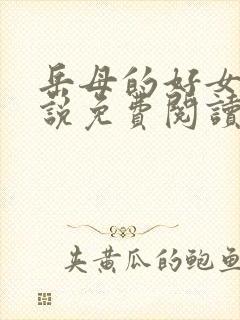 岳母的好女
說免費閱讀
夹黄瓜的鲍鱼